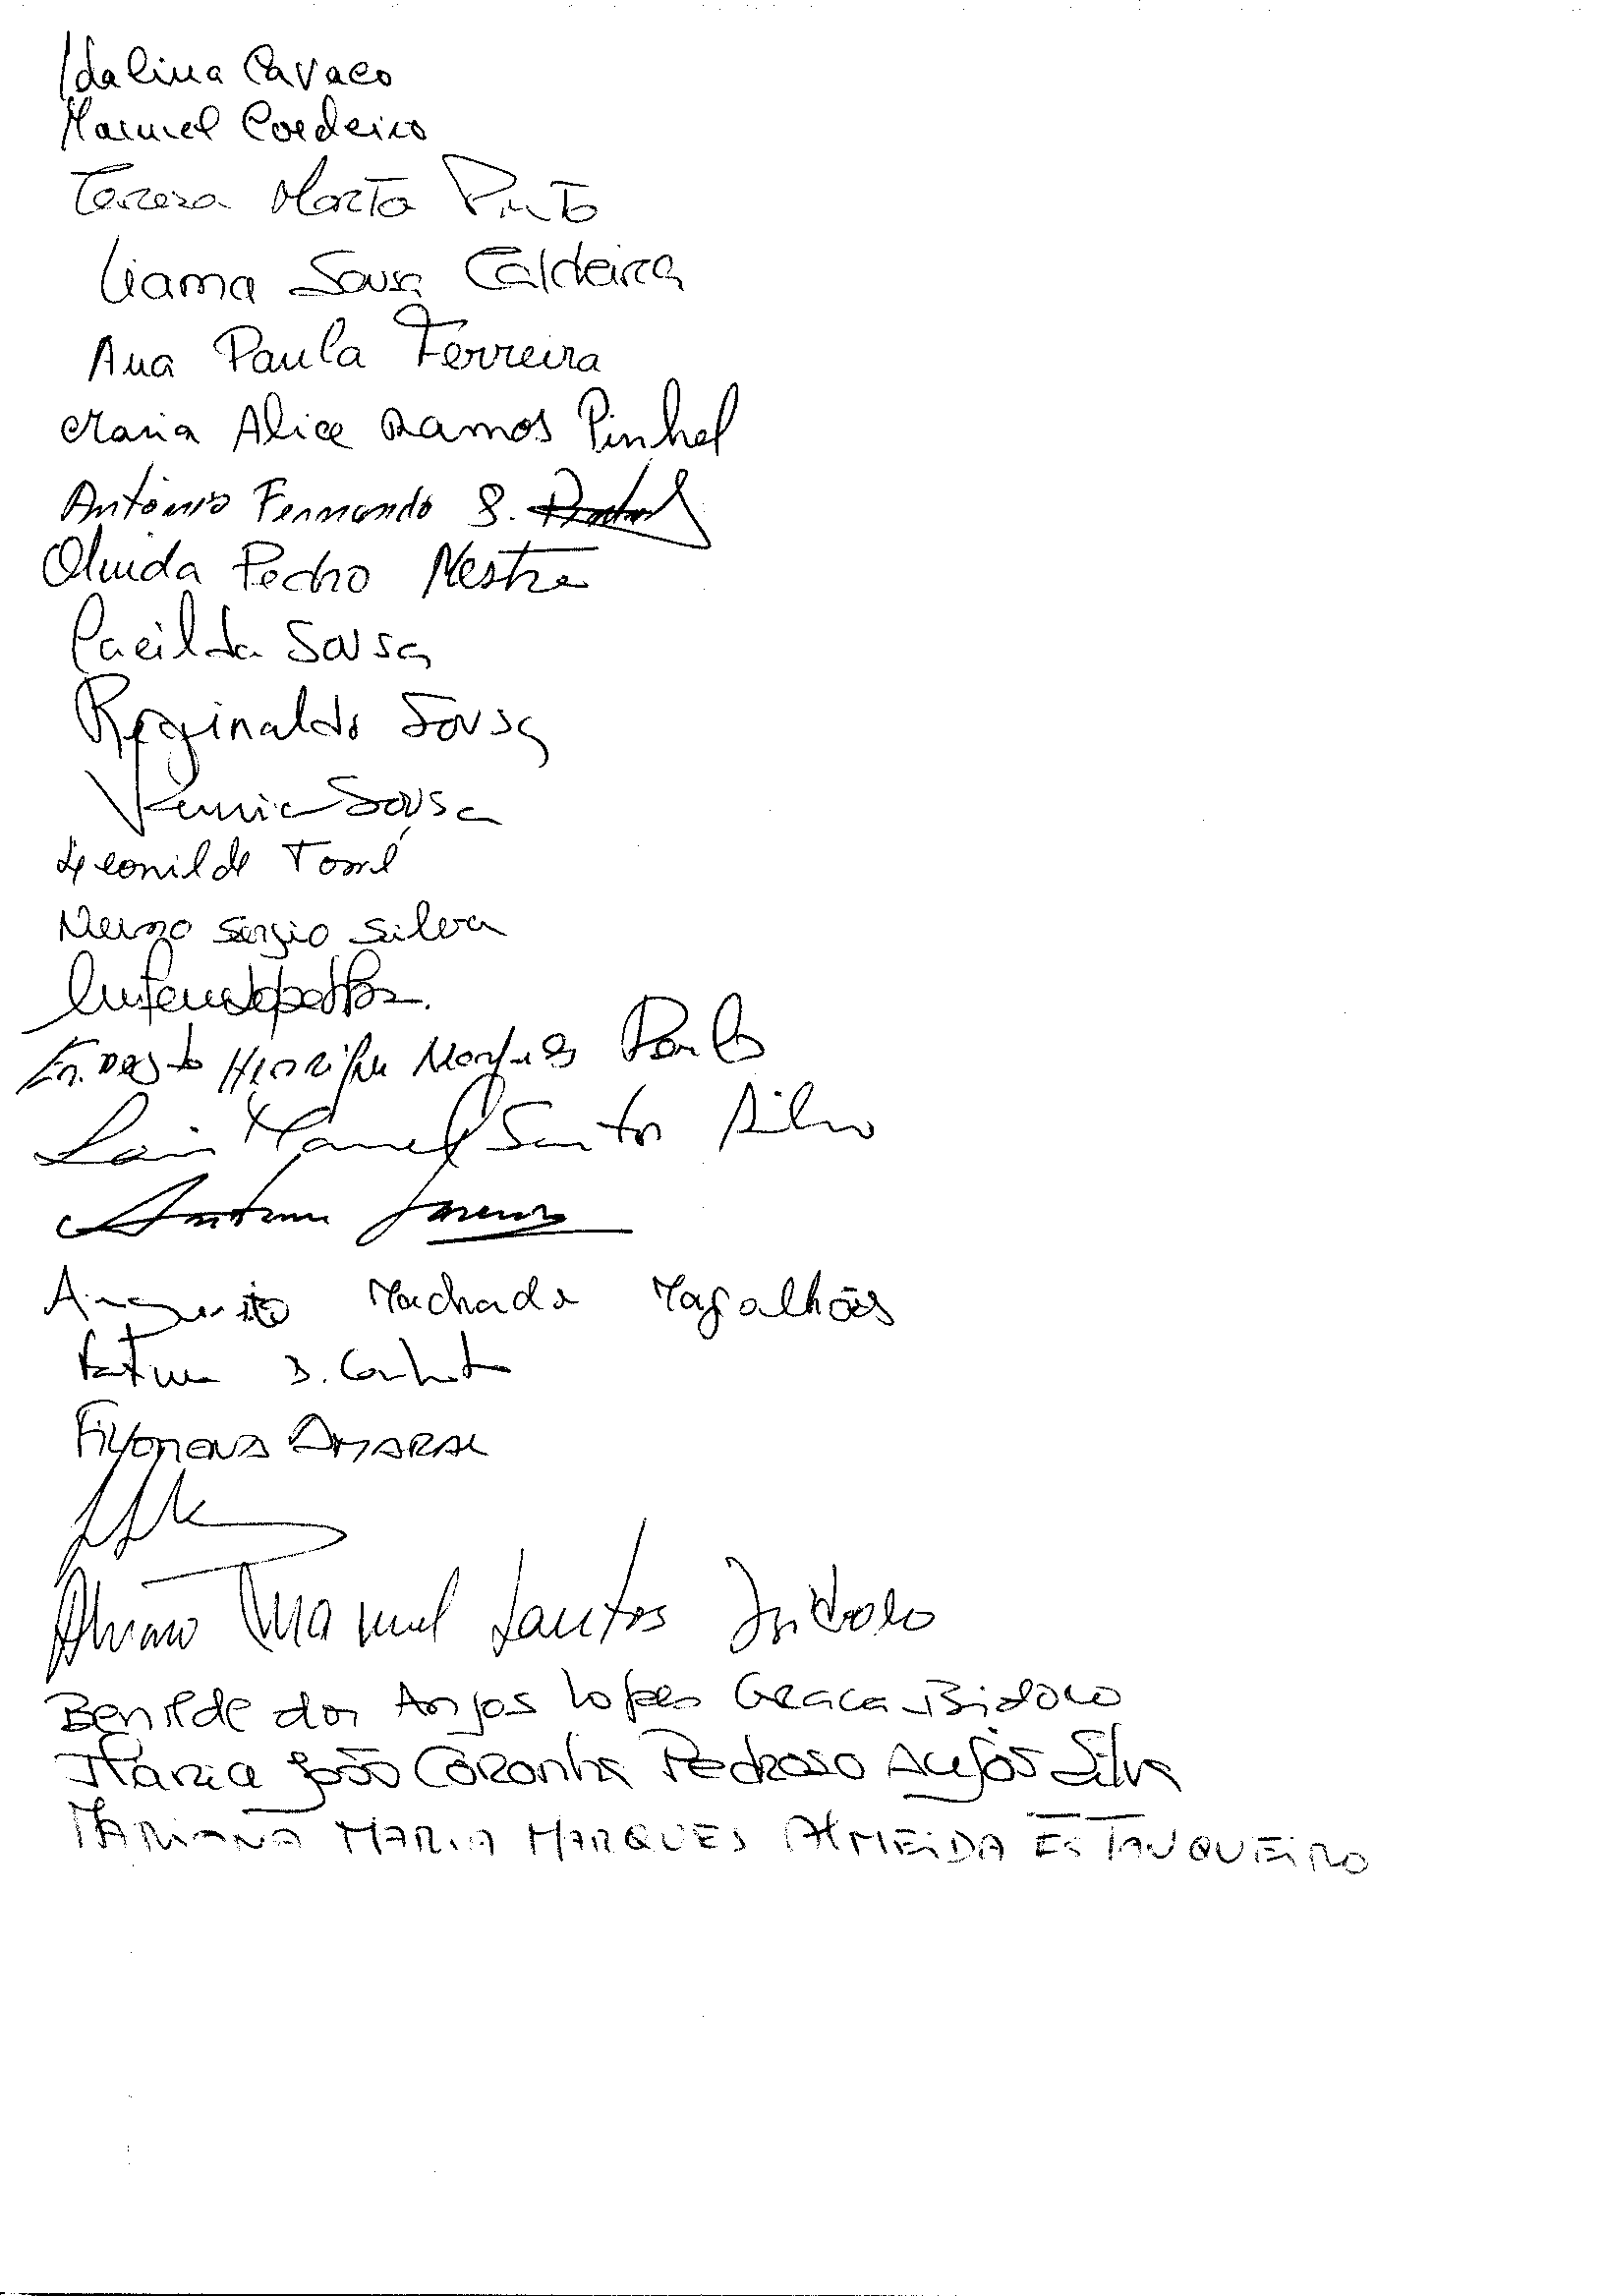 Idalina Cavaco
Manuel Cordeiro
Tereza Marta Pinto
Liama Sousa Caldeira
Ana Paula Ferreira
Maria Alice Ramos Pinhel
António Fernando S.
Olinda Pedro Mestre
Pacilda Sousa
Reginaldo Sousa
Sousa
Leonilde Tomé
Nuno Sérgio Silva
Ernesto Henrique Marques Paulo
Luis Manuel Santos Silva
Antonio
Augusto Machado Magalhães
Fatima B.
Filomena AMARAL
Alvaro Manuel Santos Isidoro
Benilde dos Anjos Lopes Graça Isidoro
Maria João Coronha Pedroso Anjos Silva
MARIANA MARIA MARQUES ALMEIDA ESTANQUEIRO